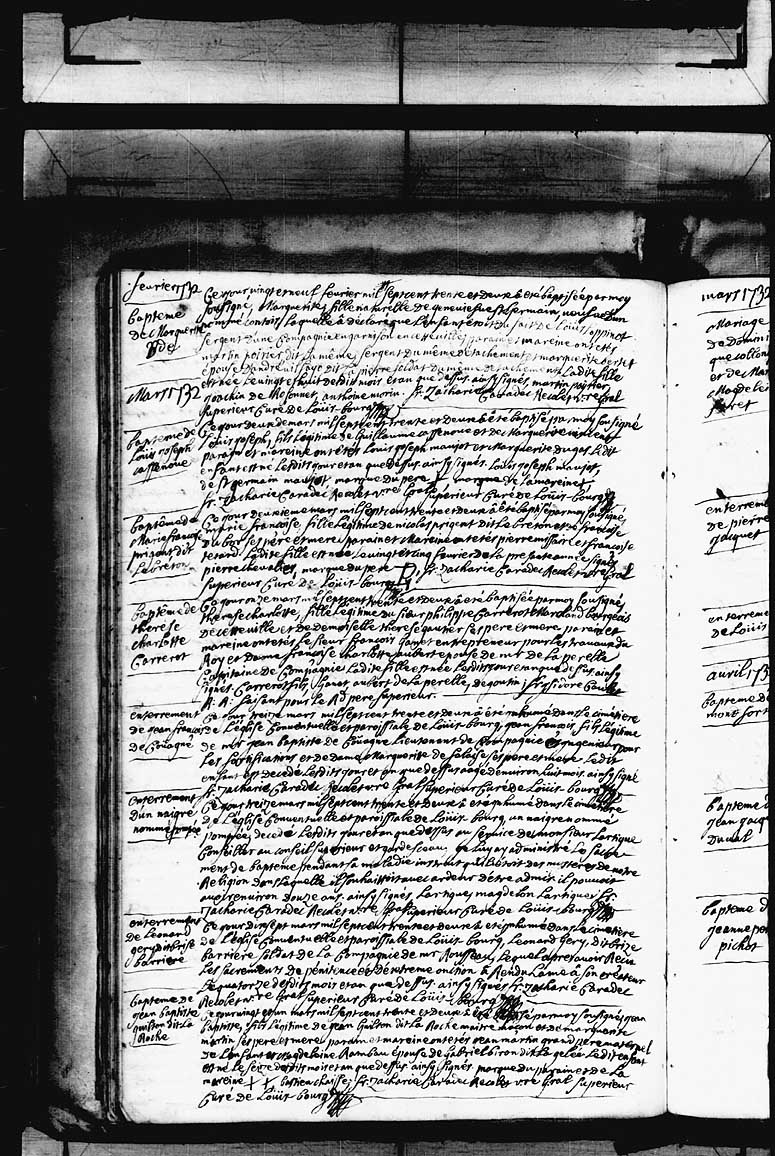 fevrier 1732
Ce jour vingt et neuf fevrier mil sept cent trente et deux a été baptisée par moy
bapteme
de Marguerite
soussigné Marguerite fille naturelle de genevieve St Germain veuve d'un
nommé contois laquelle a declaré que l'enfant étoit du fait de Louis
sergent d'une Compagnie en garnison en cette ville parain et mareine ont étés
martin poirier dit Lamusé, sergent du même detachement et marguerite
épouse d'andré dit La pierre soldat du même detachement. La ditte fille
est née le vingt et huit desdits mois et an que dessus, ainsy signés, martin poirier
Mars 1732
joachin de anthoine morin. fr. Zacharie Caradec Recolet v.re gral
superieur Curé de Louis-bourg
bapteme de
Louis joseph
cassenove
Ce jour deux de mars mil sept cent trente et deux a été baptisé par moy soussigné
Louis joseph, fils légitime de Guillaume cassenove et de Marguerite vincent
parain et mareine ont étés Louis joseph maujot et Marguerite dugas. Ledit
enfant est né lesdits jour et an que dessus. ainsy signés. Louis joseph maujot,
de St germain maujot, marque du pere + marque de La mareine +
fr. Zacharie Caradec Recolet v.re Gral superieur Curé de Louis-bourg
baptême de
Marie francoise
prigent dit
Le breton
Ce jour deuxieme mars mil sept cent trente et deux a été baptisée par moy soussigné,
Marie francoise, fille Légitime de nicolas prigent dit Le breton et de francoise
du bor ses pere et mere, parain et mareine ont étés pierre missaire et francoise
tetard. Ladite fille est née Le vingt et cinq fevrier de la presente année signés
pierre chevalier, marque du pere fr. Zacharie Caradec Recolet v.re Gral
superieur Curé de Louis-bourg
baptême de
thérèse
charlotte
Carrerot
Ce jour onze mars mil sept cent trente et deux a été baptisée par moy soussigné
therese charlotte, fille Légitime du sieur philippe Carrerot Marchand bourgeois
de cette ville et de demoiselle therese gautier ses pere et mere, parain et
mareine ont étés Le sieur francois ganet entrepreneur pour les travaux du
Roy et dame francoise charlotte aubert epouse de m.r de la perelle
Capitaine de Compagnie Ladite fille est née Lesdits jour et an que dessus, ainsy
signés Carrerot fils, Ganet aubert de la perelle, degoutin, fr. isidore Caulet
R. R: faisant pour le Rd pere superieur.
enterrement
de jean francois
de Coüagne
Ce jour treize mars mil sept cent trente et deux a été inhumé dans le cimetiere
de l'église Conventuelle et paroissiale de Loüis bourg, jean francois, fils légitime
de m.r jean baptiste de Coüagne Lieutenant de Compagnie et ingenieur pour
Les fortifications et de Dame Marguerite de falaise, ses pere et mere. Ledit
enfant est decedé Lesdits jour et an que dessus aagé d'environ huit mois, ainsy signé
fr. Zacharie Caradec Recolet v.re Gral superieur Curé de Loüis bourg
enterrement
d'un naigre
nommé pompée
Ce jour treize mars mil sept cent trente et deux a été inhumé dans le cimetiere
de l'église Conventuelle et paroissiale de Loüis bourg, un naigre nommé
pompée, decedé Lesdits jour et an que dessus au service de monsieur Lartigue
Conseiller au conseil superieur et garde sceau. je Luy ay administré Le sacre
ment de baptême pendant sa maladie instruit qu'il étoit des mysteres de notre
Religion dans Laquelle il souhaittoit avec ardeur d'être admis. il pouvoit
avoir environ douze ans. ainsy signés Lartigue, magdelon Lartigue, fr.
Zacharie Caradec Recolet v.re Gral superieur Curé de Loüis bourg
enterrement
de Leonard
gery dit brise
barriere
Ce jour dixsept mars mil sept cent trente et deux a été inhumé dans le cimetiere
de l'église Conventuelle et paroissiale de Loüis bourg, Leonard Gery, dit brize
barriere soldat de la Compagnie de m.r Rousseau, Lequel apres avoir Receu
Les sacrements de pénitence et d'extreme onction a Rendu L'ame à son créateur
Le quatorze desdits mois et an que dessus. ainsy signé fr. Zacharie Caradec
Recolet v.re Gral superieur Curé de Loüis bourg
bapteme de
jean baptiste
guilton dit La
Roche
Ce jour vingt et un mars mil sept cent trente et deux a été baptisé par moy soussigné jean
baptiste, fils légitime de jean Guilton dit La Roche maitre maçon et de marguerite
martin ses pere et mere, parain et mareine ont étés jean martin grand pere maternel
de L'enfant et Magdeleine Rambau épouse de Gabriel biron dit La gelée. Ledit enfant
est né le seize desdits mois et an que dessus. ainsy signés, marque du parain et de La
mareine + + bastien chaisse: fr. Zacharie Caradec Recolet v.re Gral superieur
Curé de Loüis bourg
mars 1732
Mariage
de Domini
que collon
et de Mar
Magdelei
enterreme
de pierre
jacquet
enterreme
de Loüis
avril 173
bapteme de
mont fort
bapteme d
jean jacq
duval
bapteme d
jeanne per
pichot